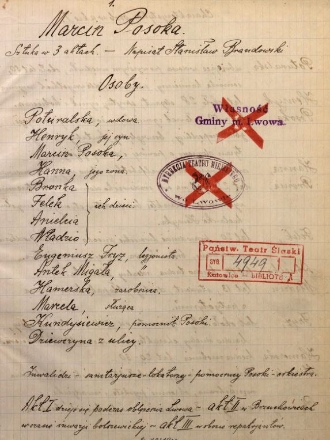 1.
Marcin Posoka.
Sztuka w 3 aktach. — Napisał Stanisław Brandowski
Osoby.
Poturalska, wdowa
Henryk, jej syn
Marcin Posoka,
Hanna, jego żona
Bronka
Felek
Anielcia
Władzio
ich dzieci
Własność
Gminy m. Lwowa.
Eugenusz
Antek Migała,
Hamerska,
Marcela służąca
Kundysiewicz, pomocnik Posoki
Dziewczyna z ulicy
Państw. Teatr Śląski
SYG 4949
Katowice BIBLIOTE
Inwalidzi – sanitarjusze – lokatorzy – pomocnicy Posoki – orkiestra.
Akt I dzieje się podczas oblężenia Lwowa – akt II. w Brzuchowicach
w czasie inwazji bolszewickiej – akt III w